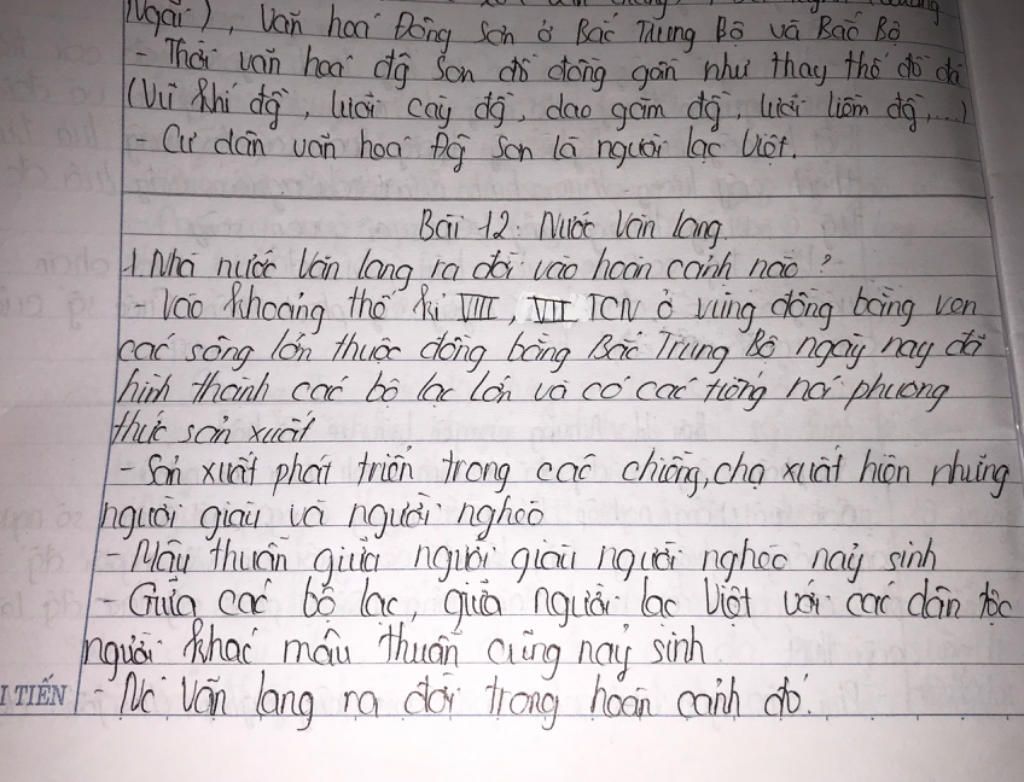 Ngãi), văn hoá Đông Sơn ở Bắc Trung Bộ và Bắc Bộ
- Thời văn hoá đg Sơn đồ đồng gần như thay thế đồ đá
(Vũ khí đg, lưỡi cày đg, dao găm đg, lưỡi liềm đg,...)
- Cư dân văn hoá Đg Sơn là người lạc Việt.
Bài 12: Nước Văn lang
1. Nhà nước Văn lang ra đời vào hoàn cảnh nào?
- Vào khoảng thế kỉ VIII, VII TCN ở vùng đồng bằng ven
các sông lớn thuộc đồng bằng Bắc Trung Bộ ngày nay đã
hình thành các bộ lạc lớn và có các tiếng nói phương
thức sản xuất
- Sản xuất phát triển trong các chiềng, chạ xuất hiện những
người giàu và người nghèo
- Mâu thuẫn giữa người giàu người nghèo nảy sinh
- Giữa các bộ lạc, giữa người lạc Việt với các dân tộc
người khác mâu thuẫn cũng nảy sinh
I TIẾN
- Nc Văn lang ra đời trong hoàn cảnh đó.